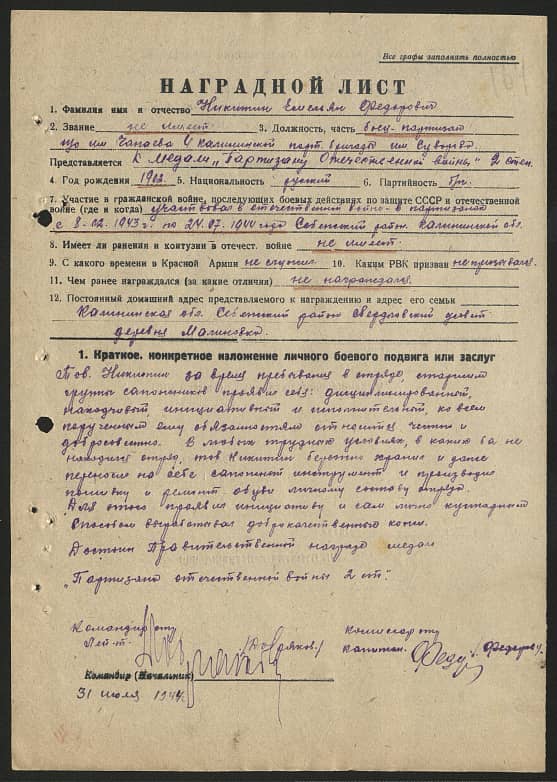 Все графы заполнять полностью
НАГРАДНОЙ ЛИСТ
1. Фамилия имя и отчество Никитин Емельян Федорович
2. Звание не имеет 3. Должность, часть боец-партизан
им Чапаева Калининской парт. бригады им Суворова
Представляется к медали „Партизану Отечественной войны" 2 степ.
4. Год рождения 5. Национальность русский 6. Партийность
7. Участие в гражданской войне, последующих боевых действиях по защите СССР и отечественной
войне (где и когда) участвовал в отечественной войне в партизанах
с 8.02.1943 г. по 24.07.1944 года Себежский район Калининской обл.
8. Имеет ли ранения и контузии в отечест. войне не имеет
9. С какого времени в Красной Армии не служил 10. Каким РВК призван не призывался
11. Чем ранее награждался (за какие отличия) не награждался
12. Постоянный домашний адрес представляемого к награждению и адрес его семьи
Калининская обл. Себежский район Свердловский
деревня Малиновка
1. Краткое, конкретное изложение личного боевого подвига или заслуг
Тов. Никитин за время пребывания в отряде, старшим
группы сапожников проявил себя: дисциплинированной,
находчивый, инициативный и исполнительной, ко всем
порученным ему обязанностям относился честно и
добросовестно. В любых трудных условиях, в каких бы не
находился отряд, тов Никитин бережно хранил и даже
переносил на себе сапожной инструмент и производил
пошивку и ремонт обуви личному составу отряда.
Для этого проявлял инициативу и сам лично кустарным
способом вырабатывал доброкачественного кожи.
Достоин Правительственной награде медали
„Партизана отечественной войны 2 ст".
Командир отр
Лей-т.
Комиссар отр
капитан. /Федоров/.
Командир (Начальник)
31 июля 1944.